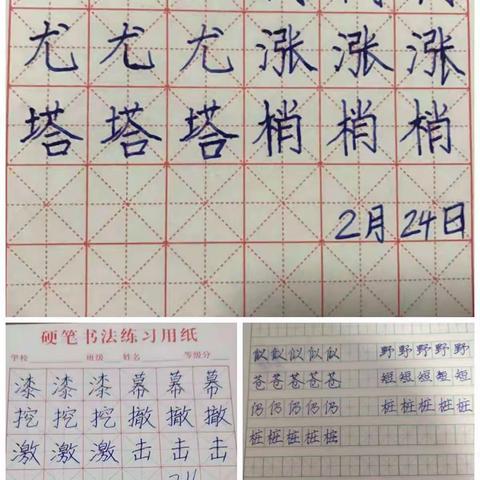 尤 尤 尤 涨 涨 涨
塔 塔 塔 梢 梢 梢
2月24日
硬笔书法练习用纸
学校 班级 姓名 等级分
漆 漆 漆 幕 幕 幕
挖 挖 挖 撤 撤 撤
激 激 激 击 击 击
似似似似似 野野野野野
苍苍苍苍苍 短短短短短
仍仍仍仍仍 桩桩桩桩桩
桩桩桩桩桩